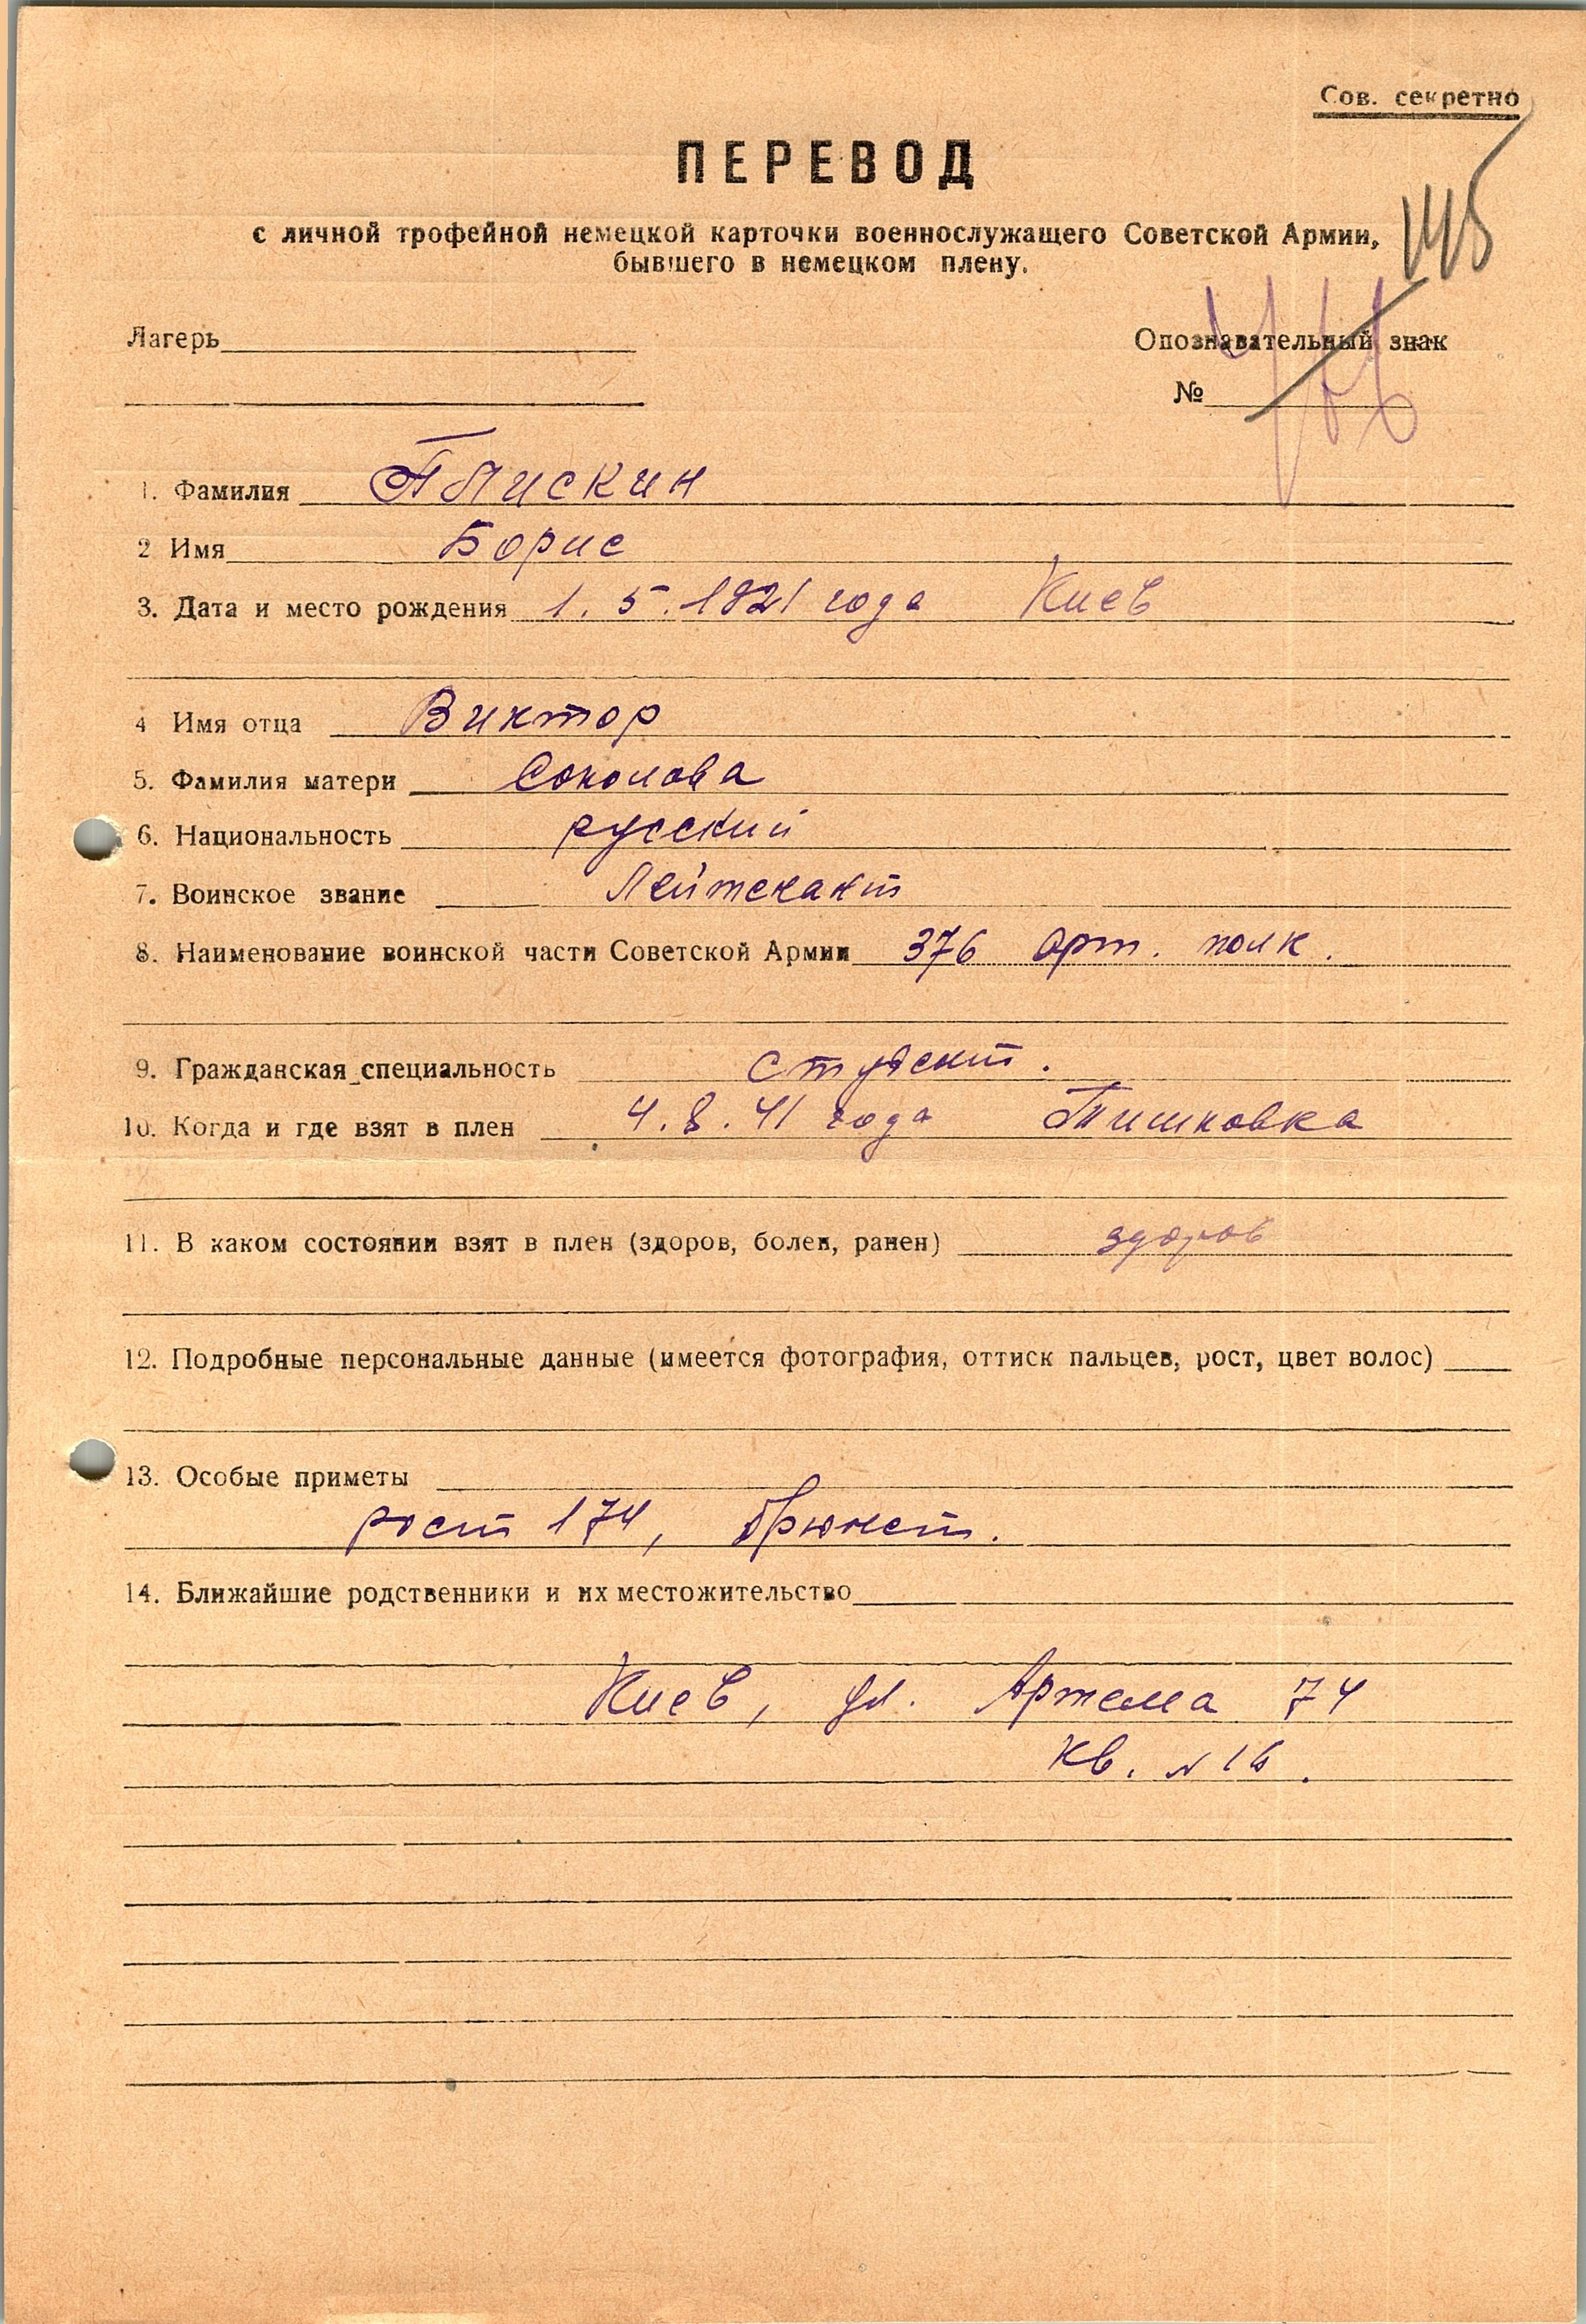 Сов. секретно
ПЕРЕВОД
с личной трофейной немецкой карточки военнослужащего Советской Армии,
бывшего в немецком плену.
Лагерь
Опознавательный знак
№
1. Фамилия
2 Имя Борис
3. Дата и место рождения 1. 5. 1921 года Киев
4 Имя отца Виктор
5. Фамилия матери Соколова
6. Национальность русский
7. Воинское звание Лейтенант
8. Наименование воинской части Советской Армии 376 арт. полк.
9. Гражданская специальность студент.
10. Когда и где взят в плен 4. 8. 41 года Тишковка
11. В каком состоянии взят в плен (здоров, болен, ранен) здоров
12. Подробные персональные данные (имеется фотография, оттиск пальцев, рост, цвет волос)
13. Особые приметы
рост 174, брюнет.
14. Ближайшие родственники и их местожительство
Киев, ул. Артема 74
кв. № 16.